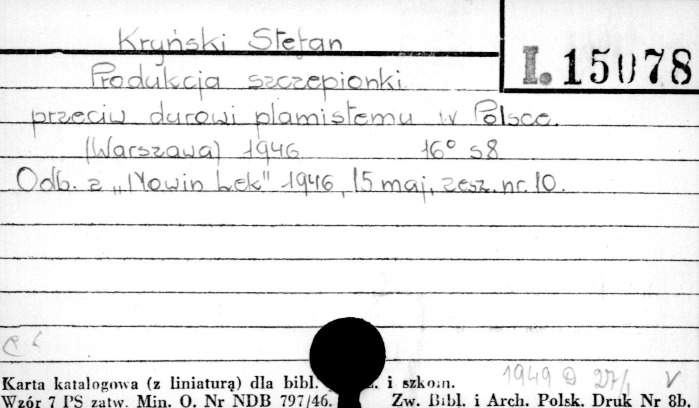 Kryński Stefan
I. 15078
Produkcja szczepionki
przeciw durowi plamistemu w Polsce.
(Warszawa) 1946 16° s 8
Odb. z „Nowin Lek" 1946, 15 maj, zesz. nr. 10.
1949 D 27/1 V
Karta katalogowa (z liniaturą) dla bibl. i szkoln.
Wzór 7 PS zatw. Min. O. Nr NDB 797/46. Zw. Bibl. i Arch. Polsk. Druk Nr 8b.